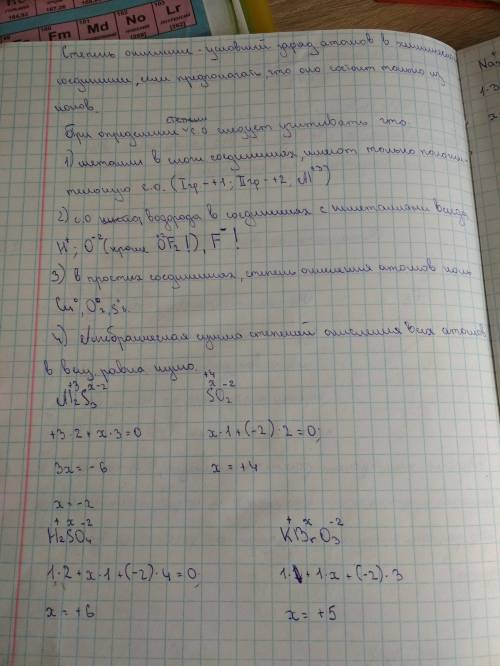 Fm Md No Lr
Степень окисления - условный заряд атомов в химическом
соединении, если предполагать, что оно состоит только из
ионов.
степени
При определении с.о следует учитывать что:
1) металлы в своих соединениях, имеют только положи-
тельную с.о. (I гр - +1; II гр - +2, Al⁺³)
2) с.о водорода в соединениях с неметаллами всегда
H⁺; O⁻² (кроме O⁺²F₂!), F⁻!
3) в простых соединениях, степень окисления атомов ноль
Cu⁰, O⁰₂, S⁰.
4) Алгебраическая сумма степеней окисления всех атомов
в вещ. равна нулю.
+3 x -2 +4
Al₂S₃ x -2
SO₂
+3·2 + x·3 = 0 x·1 + (-2)·2 = 0;
3x = -6 x = +4
x = -2
+ x -2 + x -2
H₂SO₄ KBrO₃
1·2 + x·1 + (-2)·4 = 0 1·1 + 1·x + (-2)·3
x = +6 x = +5